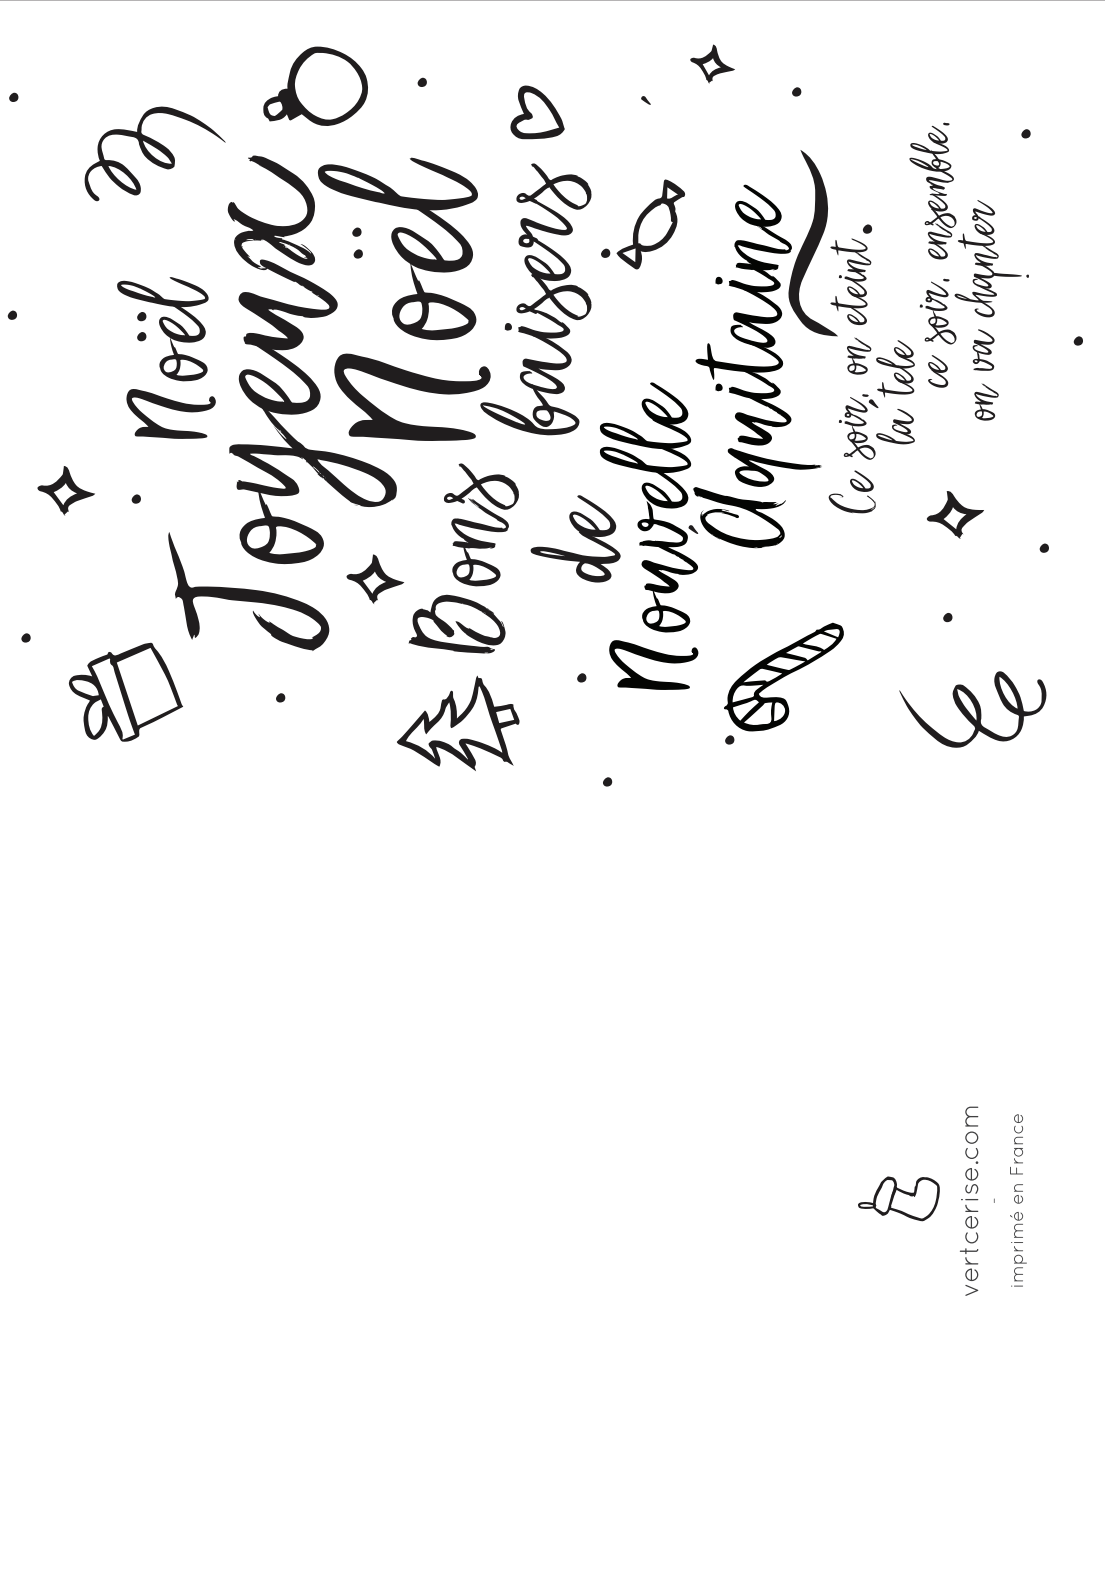 Noël
Joyeux
Noël
Bons baisers
de
Nouvelle
Aquitaine
Ce soir, on éteint
la tele
ce soir, ensemble,
on va chanter
!
vertcerise.com
-
imprimé en France